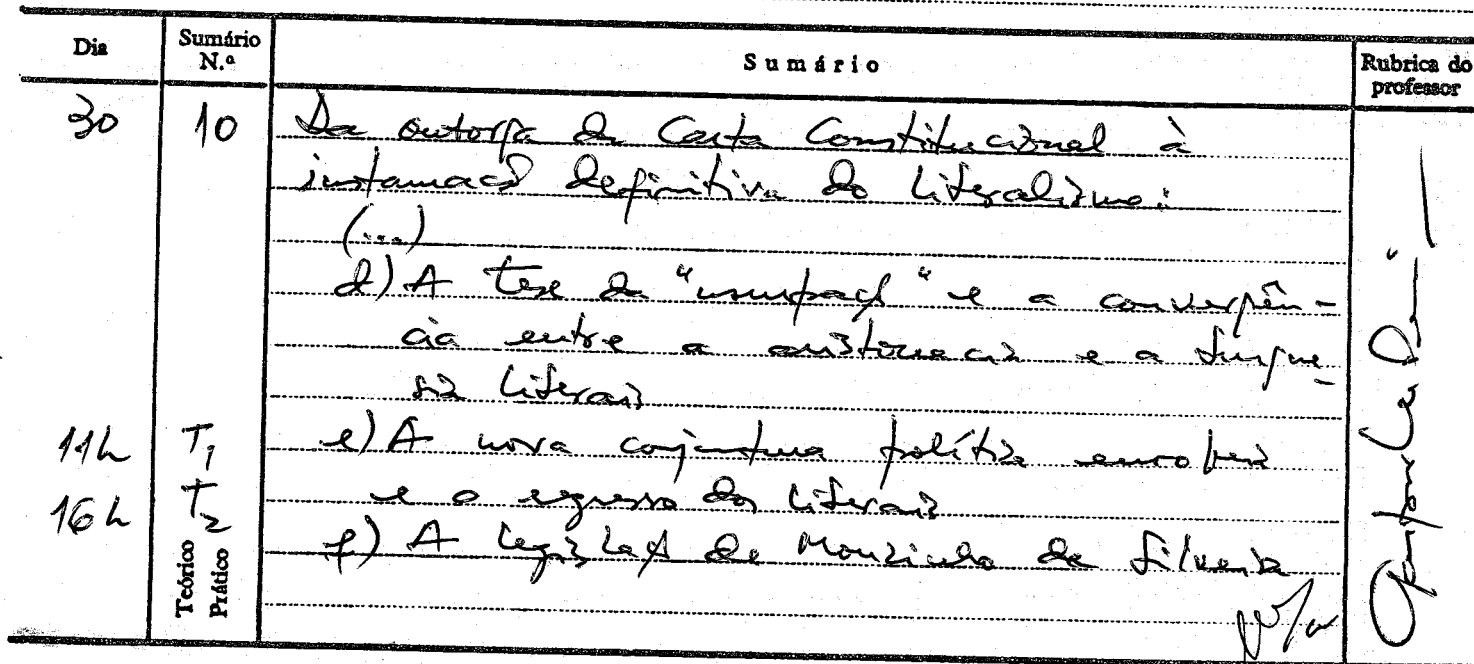 Dia Sumário N.º Sumário Rubrica do professor
30 10 Da outorga da Carta Constitucional à
instauração definitiva do Liberalismo:
(...)
d) A tese da "usurpação" e a convergên-
cia entre a aristocracia e a burgue-
sia liberais
11h T1 e) A nova conjuntura política europeia
16h T2 e o regresso dos liberais
f) A legislação de Mouzinho da Silveira
Teórico
Prático